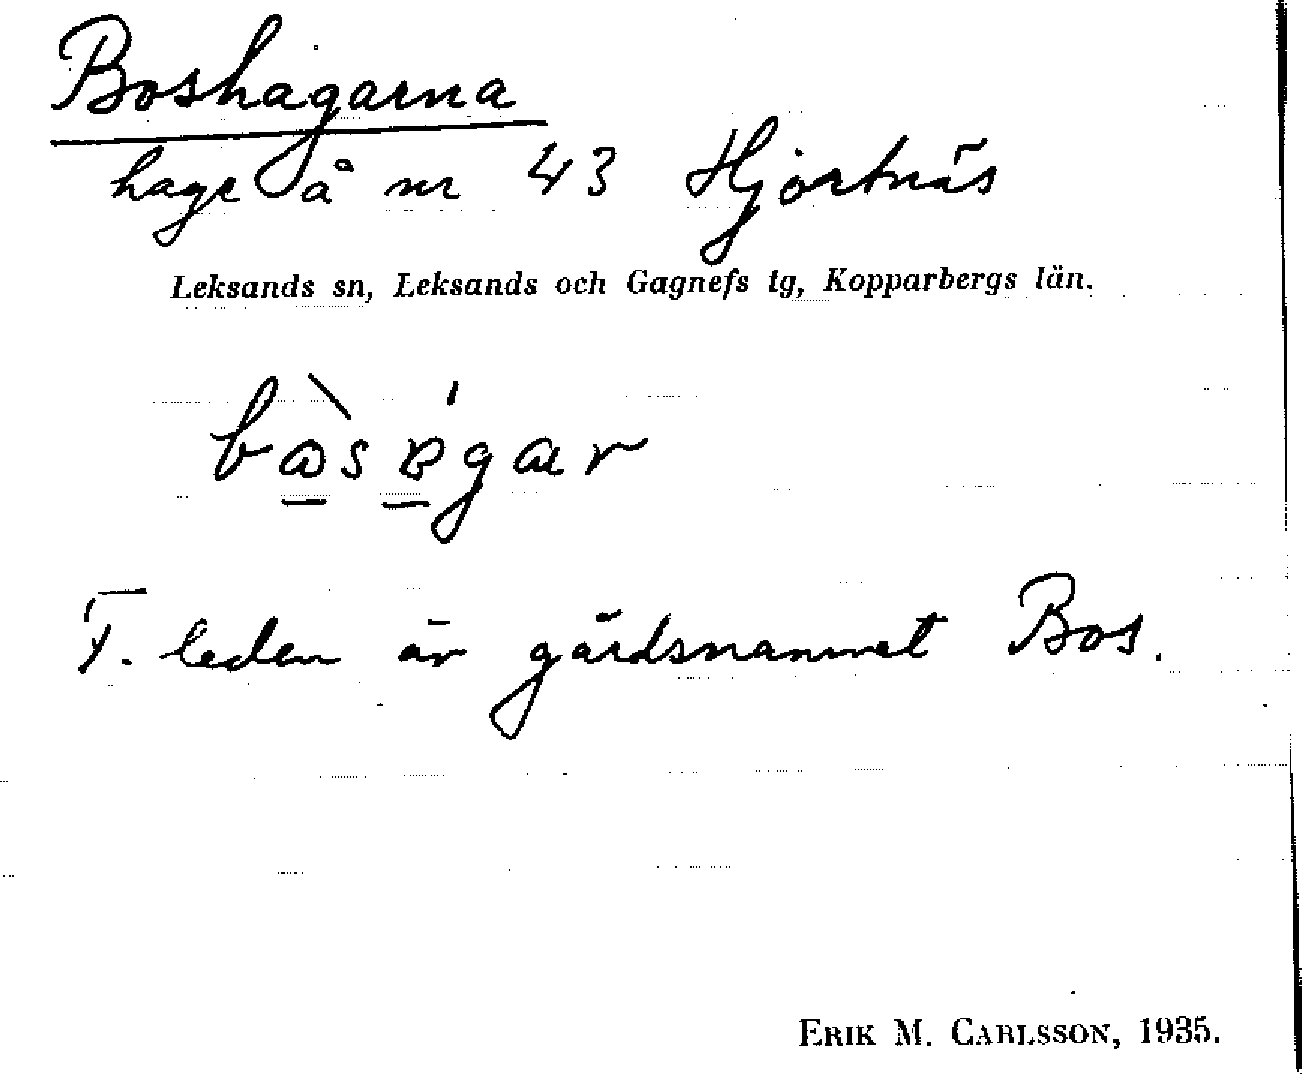 Boshagarna
hage å nr 43 Hjortnäs
Leksands sn, Leksands och Gagnefs tg, Kopparbergs län.
F. leden är gårdsnamnet Bos.
ERIK M. CARLSSON, 1935.